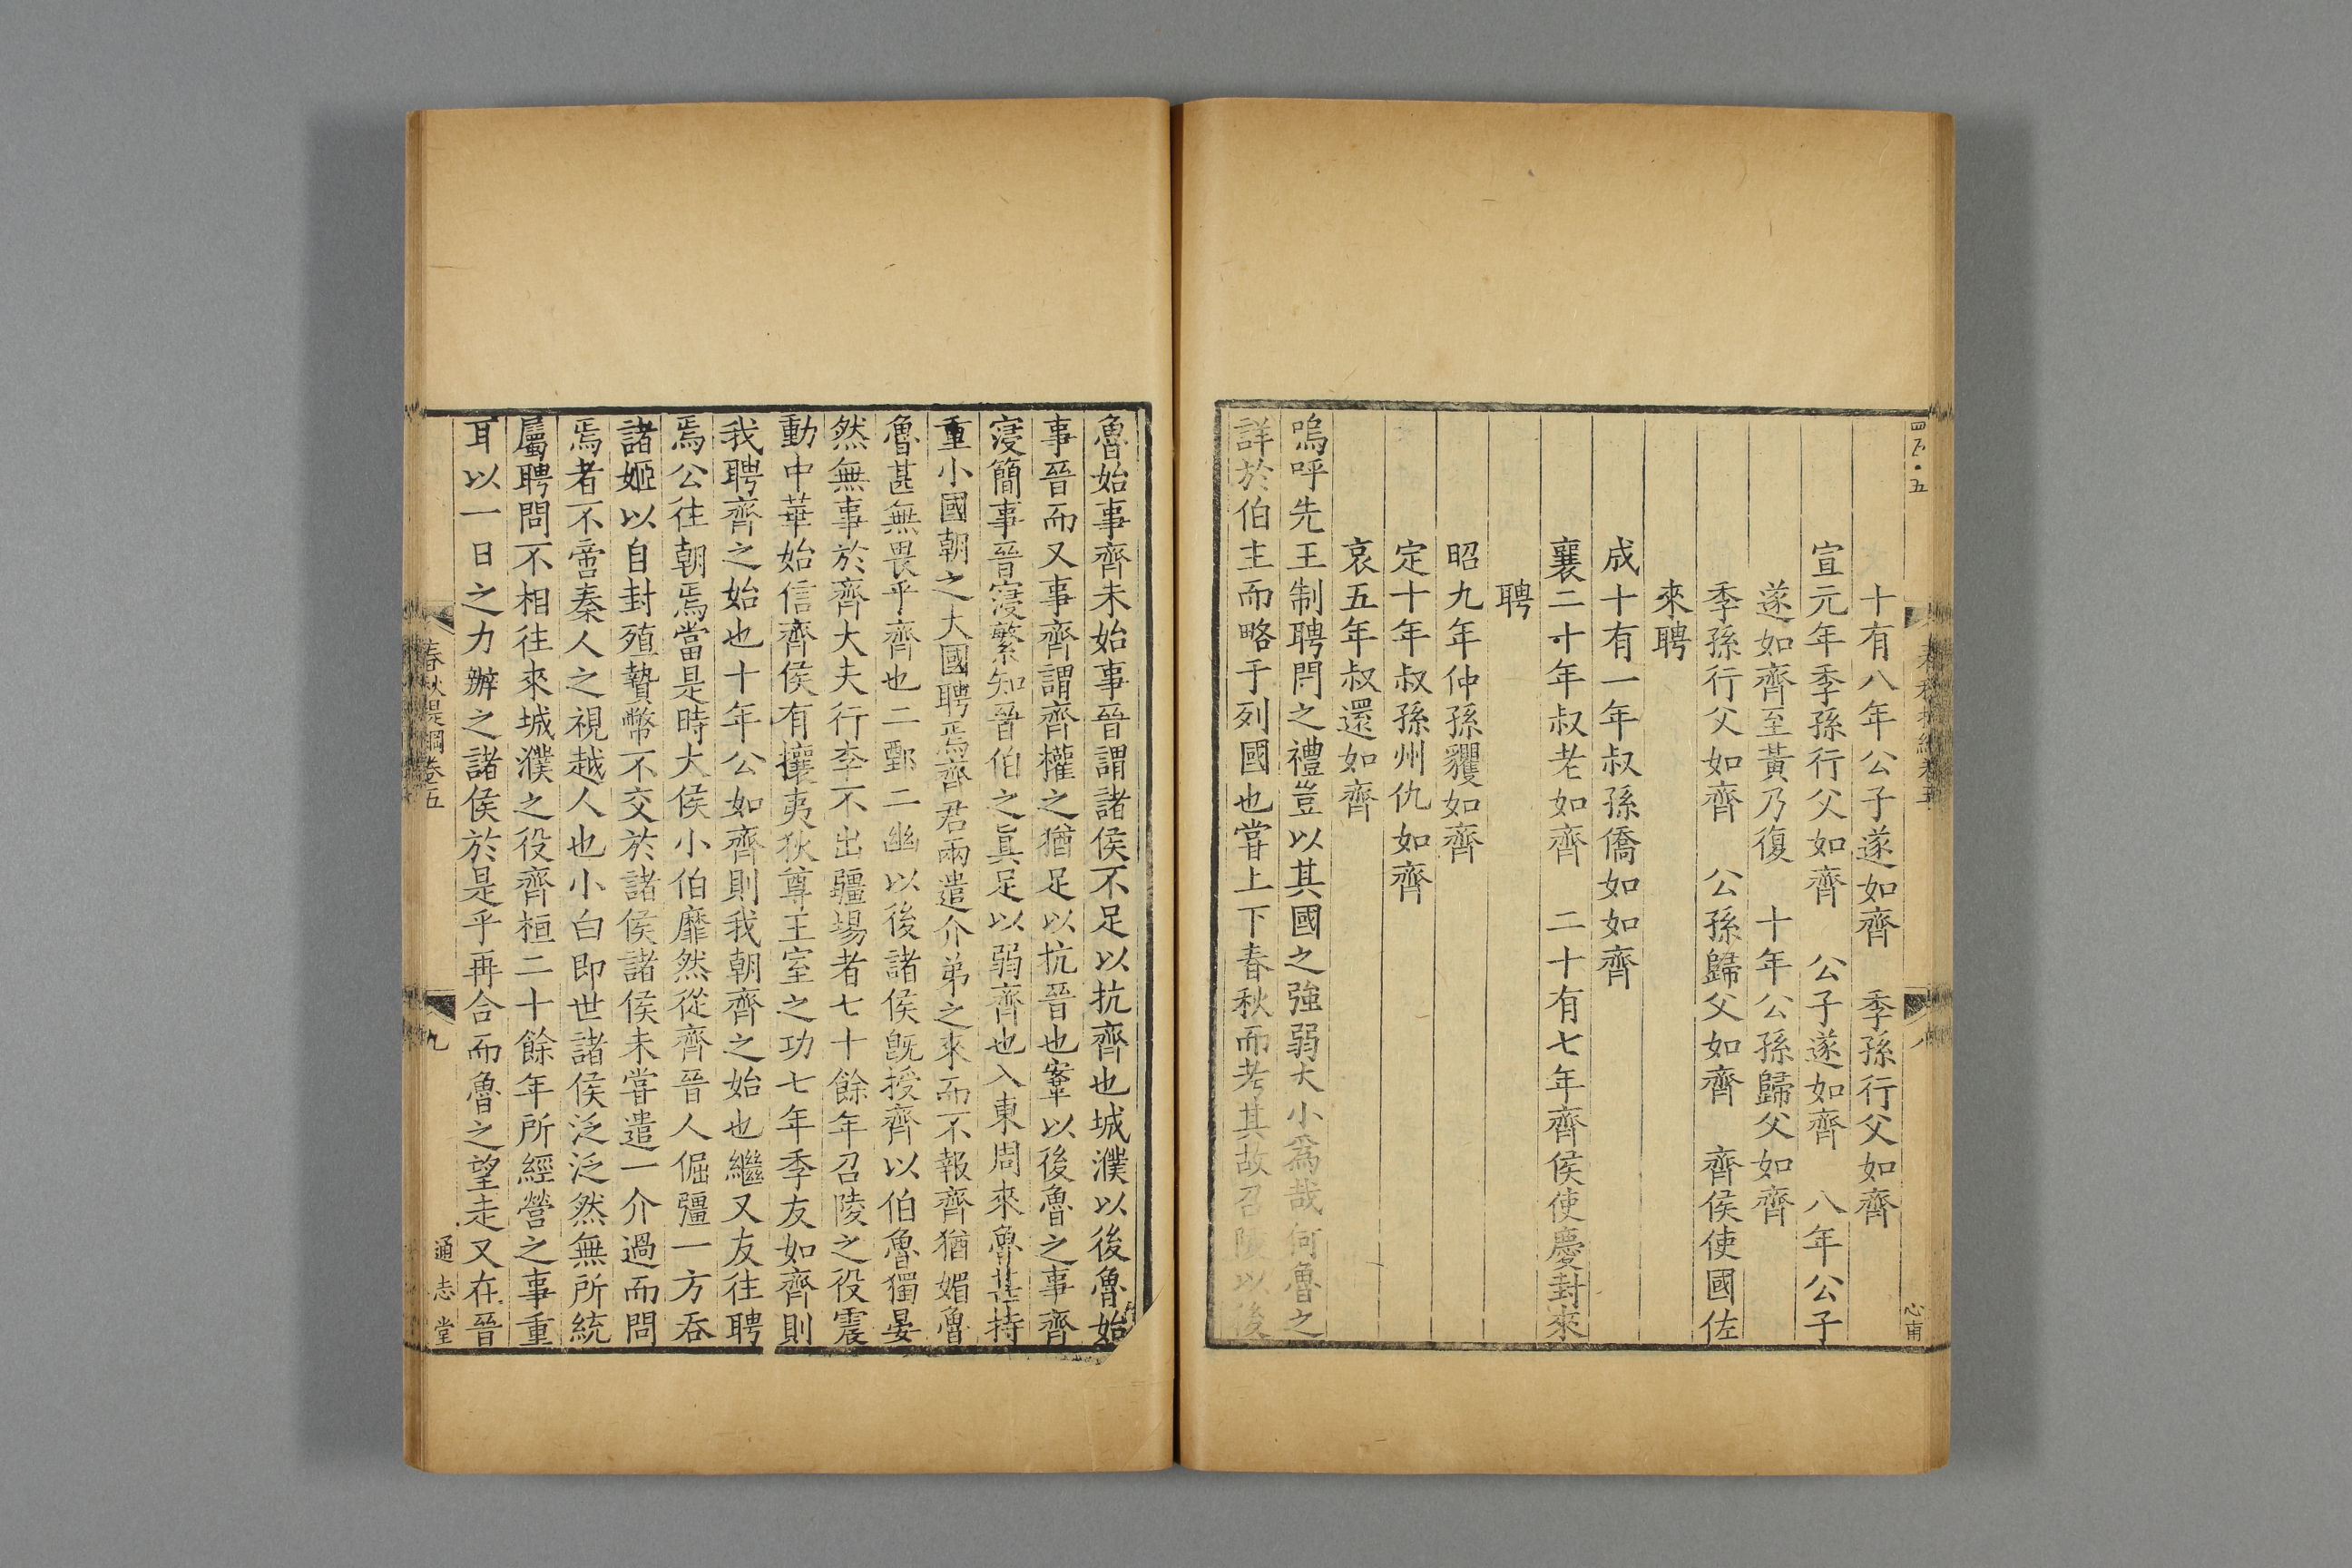 十有八年公子遂如齊 季孫行父如齊
宣元年季孫行父如齊 公子遂如齊 八年公子
遂如齊至黃乃復 十年公孫歸父如齊
季孫行父如齊 公孫歸父如齊 齊侯使國佐
來聘
成十有一年叔孫僑如如齊
襄二十年叔老如齊 二十有七年齊侯使慶封來
聘
昭九年仲孫貜如齊
定十年叔孫州仇如齊
哀五年叔還如齊
嗚呼先王制聘問之禮豈以其國之強弱大小爲哉何魯之
詳於伯主而略于列國也嘗上下春秋而考其故召陵以後
魯始事齊未始事晉謂諸侯不足以抗齊也城濮以後魯始
事晉而又事齊謂齊權之猶足以抗晉也鞌以後魯之事齊
寖簡事晉寖繁知晉伯之真足以弱齊也入東周來魯甚持
重小國朝之大國聘焉齊君兩遣介弟之來而不報齊猶媚魯
魯甚無畏乎齊也二鄄二幽以後諸侯旣授齊以伯魯獨晏
然無事於齊大夫行李不出疆埸者七十餘年召陵之役震
動中華始信齊侯有攘夷狄尊王室之功七年季友如齊則
我聘齊之始也十年公如齊則我朝齊之始也繼又友往聘
焉公往朝焉當是時大侯小伯靡然從齊晉人倔彊一方吞
諸姬以自封殖贄幣不交於諸侯諸侯未嘗遣一介過而問
焉者不啻秦人之視越人也小白即世諸侯泛泛然無所統
屬聘問不相往來城濮之役齊桓二十餘年所經營之事重
耳以一日之力辦之諸侯於是乎再合而魯之望走又在晉
春秋提綱卷五
九
通志堂